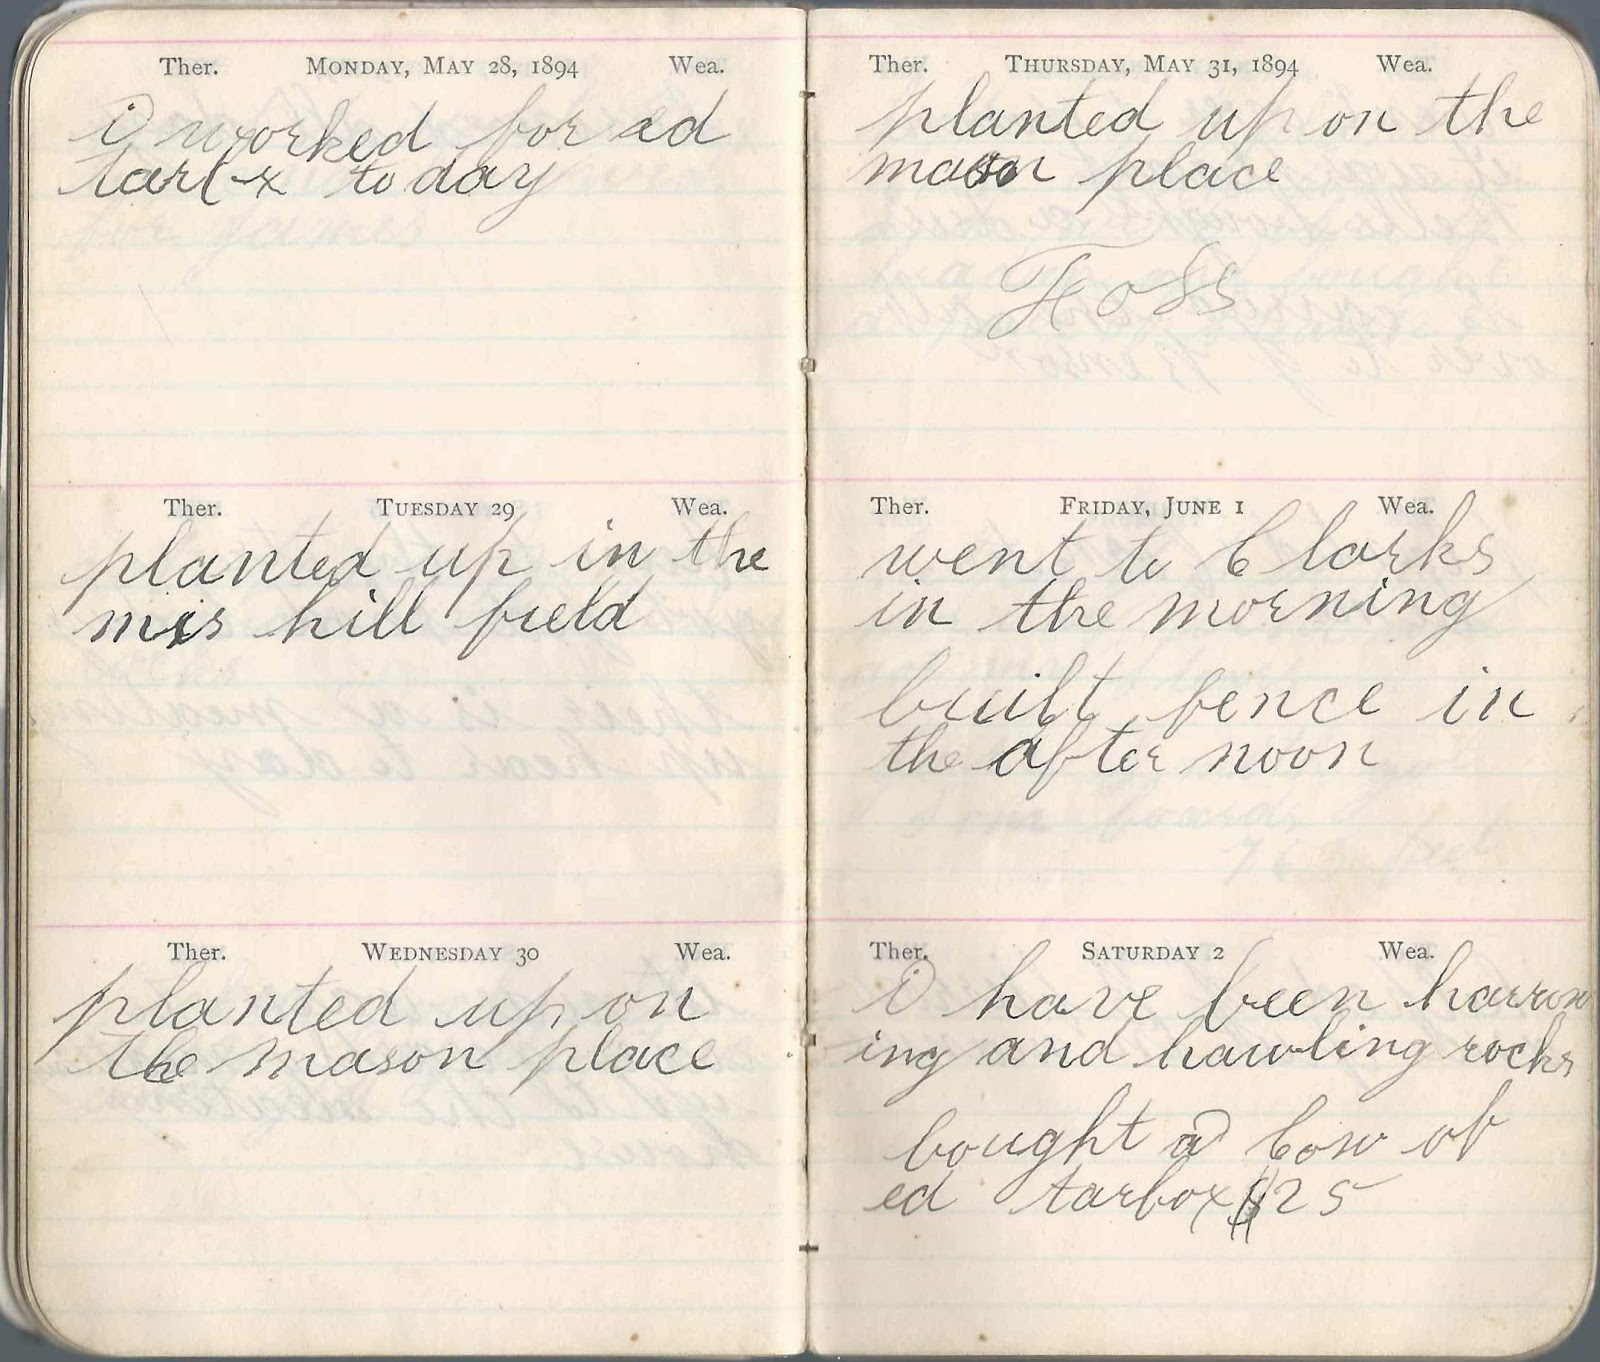 Ther. MONDAY, MAY 28, 1894 Wea.
i worked for ed
to day
Ther. TUESDAY 29 Wea.
planted up in the
mis hill field
Ther. WEDNESDAY 30 Wea.
planted up on
the mason place
Ther. THURSDAY, MAY 31, 1894 Wea.
planted up on the
mason place
Foss
Ther. FRIDAY, JUNE 1 Wea.
went to Clarks
in the morning
built fence in
the after noon
Ther. SATURDAY 2 Wea.
i have been harrow
ing and hawling rocks
bought a Cow of
ed tarbox $25